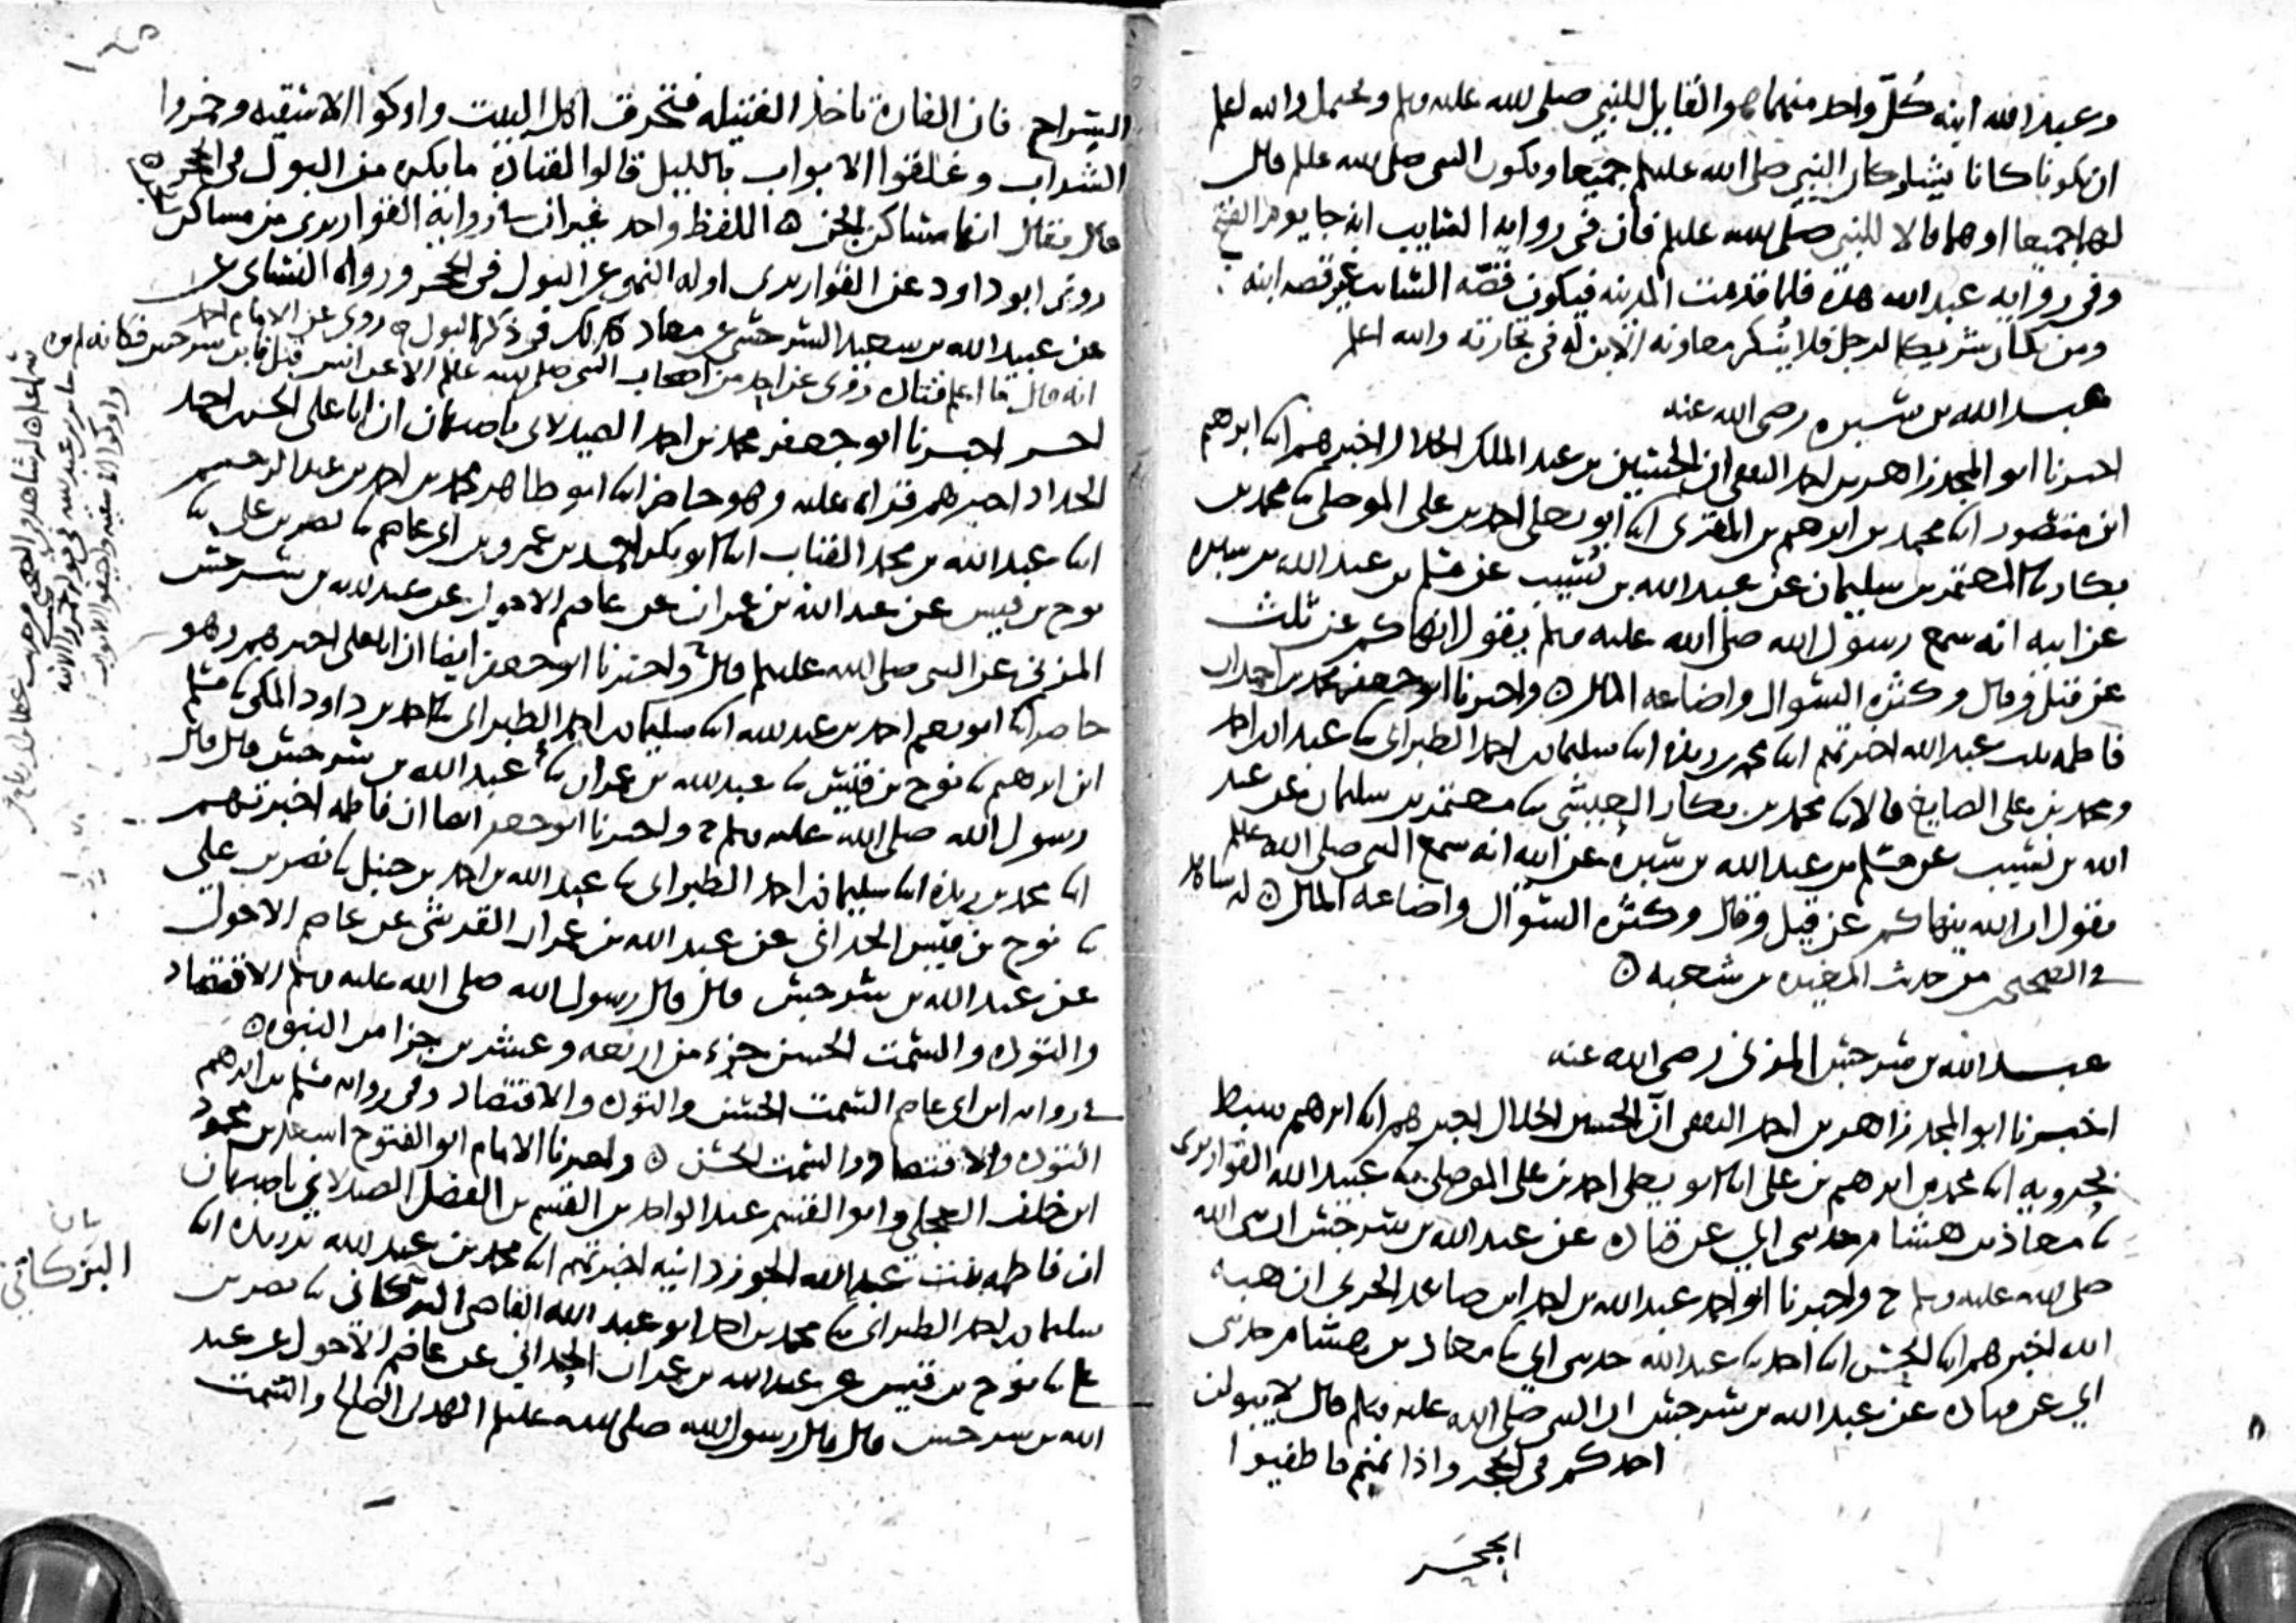 وعبد الله ابنه كل واحد منهما هو القايل للنبي صلى الله عليه وسلم ويحتمل والله اعلم
ان يكونا كانا يشاركان النبي صلى الله عليه وسلم جميعا ويكون النبي صلى الله عليه وسلم قال
لهما جميعا او هما قالا للنبي صلى الله عليه وسلم فان في رواية السايب انه جا يوم الفتح
وفي رواية عبد الله هذه فلما قدمت المدينه فيكون قصه السايب غير قصه ابنه
ومن كان شريكا لرجل فلا ينكر معاونه الابن له في تجارته والله اعلم
عبد الله بن سبره رضي الله عنه
اخبرنا ابو المجد زاهر بن احمد الثقفي ان الحسين بن عبد الملك الخلال اخبرهم ابنا ابرهيم
ابن منصور ابنا محمد بن ابرهيم بن المقرئ ابنا ابو يعلى احمد بن علي الموصلي ثنا محمد بن
بكار ثنا المعتمر بن سليمان عن عبد الله بن نسيب عن مسلم بن عبد الله بن سبره
عن ابيه انه سمع رسول الله صلى الله عليه وسلم يقول انهاكم عن ثلث
عن قيل وقال وكثره السوال واضاعه المال ه واخبرنا ابو جعفر محمد بن احمد ان
فاطمه بنت عبد الله اخبرتهم ابنا محمد بن ريذه ابنا سليمان بن احمد الطبراني ثنا عبدان بن احمد
ومحمد بن علي الصايغ قالا ثنا محمد بن بكار العيشي ثنا معتمر بن سليمان عن عبد
الله بن نسيب عن مسلم بن عبد الله بن سبره عن ابيه انه سمع النبي صلى الله عليه وسلم
يقول ان الله ينهاكم عن قيل وقال وكثره السوال واضاعه المال ه له شاهد
في الصحيحين من حديث المغيره بن شعبه ه
عبد الله بن سرجس المزني رضي الله عنه
اخبرنا ابو المجد زاهر بن احمد الثقفي ان الحسين الخلال اخبرهم ابنا ابرهيم سبط
بحرويه ابنا محمد بن ابرهيم بن علي ابنا ابو يعلى احمد بن علي الموصلي ثنا عبيد الله القواريري
ثنا معاذ بن هشام حدثني ابي عن قتاده عن عبد الله بن سرجس ان نبي الله
صلى الله عليه وسلم ح واخبرنا ابو احمد عبد الله بن احمد ابن صاعد الحربي ان هبه
الله اخبرهم ابنا الحسن ابنا احمد ثنا عبد الله حدثني ابي ثنا معاذ بن هشام حدثني
ابي عن قتاده عن عبد الله بن سرجس ان النبي صلى الله عليه وسلم قال لا يبولن
احدكم في الجحر واذا نمتم فاطفيوا
السراج فان الفارة تاخذ الفتيله فتحرق اهل البيت واوكوا الاسقيه وخمروا
الشراب وغلقوا الابواب بالليل قالوا لقتادة ما يكره من البول في الجحر ه
قال يقال انها مساكن الجن ه اللفظ واحد غير ان في رواية القواريري من مساكن
روى ابو داود عن القواريري اوله النهي عن البول في الجحر ورواه النسائي عن
عن عبيد الله بن سعيد السرخسي عن معاذ كذلك في ذكر البول ه روى عن الامام احمد
انه قال ما اعلم قتاده روى عن احد من اصحاب النبي صلى الله عليه وسلم الا عن انس قيل فابن سرجس فكانه لم يره
اخبرنا ابو جعفر محمد بن احمد الصيدلاني باصبهان ان ابا علي الحسن بن احمد
الحداد اخبرهم قراه عليه وهو حاضر ابنا ابو طاهر محمد بن احمد بن عبد الرحيم
ابنا عبد الله بن محمد القباب ابنا ابو بكر احمد بن عمرو بن ابي عاصم ثنا نصر بن علي ثنا
نوح بن قيس عن عبد الله بن عمران عن عاصم الاحول عن عبد الله بن سرجس
المزني عن النبي صلى الله عليه وسلم قال ح واخبرنا ابو جعفر ايضا ان ابا علي اخبرهم وهو
حاضر ابنا ابو نعيم احمد بن عبد الله ابنا سليمان بن احمد الطبراني ثنا احمد بن داود المكي ثنا مسلم
ابن ابرهيم ثنا نوح بن قيس ثنا عبد الله بن عمران ثنا عبد الله بن سرجس قال قال
رسول الله صلى الله عليه وسلم ح واخبرنا ابو جعفر ايضا ان فاطمه اخبرتهم
ابنا محمد بن ريذه ابنا سليمان بن احمد الطبراني ثنا عبد الله بن احمد بن حنبل ثنا نصر بن علي
ثنا نوح بن قيس الحداني عن عبد الله بن عمران القرشي عن عاصم الاحول
عن عبد الله بن سرجس قال قال رسول الله صلى الله عليه وسلم الاقتصاد
والتوده والسمت الحسن جزء من اربعه وعشرين جزا من النبوه ه
في رواية ابن ابي عاصم السمت الحسن والتوده والاقتصاد وفي رواية مسلم بن ابرهيم
التوده والاقتصاد والسمت الحسن ه واخبرنا الامام ابو الفتوح اسعد بن محمود
ابن خلف العجلي وابو القسم عبد الواحد بن القسم بن الفضل الصيدلاني باصبهان
ان فاطمه بنت عبد الله الجوزدانيه اخبرتهم ابنا محمد بن عبد الله بن ريذه ابنا
سليمان بن احمد الطبراني ثنا محمد بن احمد ابو عبد الله القاضي البركاني ثنا نصر بن
علي ثنا نوح بن قيس عن عبد الله بن عمران الحداني عن عاصم الاحول عن عبد
الله بن سرجس قال قال رسول الله صلى الله عليه وسلم الهدى الصالح والسمت
البركاني